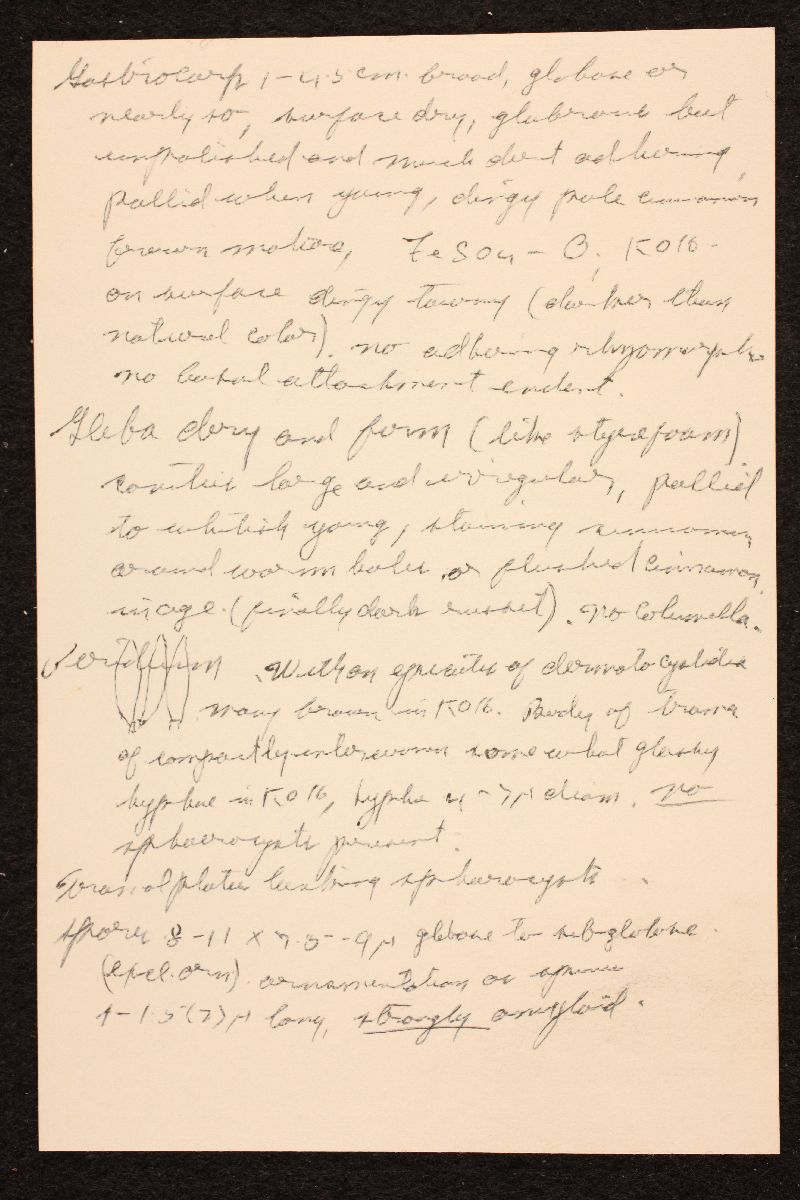 Gastrocarp 1-4.5 cm. broad, globose or
nearly so, surface dry, glabrous but
unpolished and much dirt adhering,
pallid when young, dingy pale cinnamon
brown mature, FeSO4 - O, KOH -
on surface dingy tawny (darker than
natural color). no adhering rhizomorphs
no basal attachment evident.
Gleba dry and firm (like styrofoam)
cavities large and irregular, pallid
to whitish young, staining cinnamon
around worm holes or flushed cinnamon
in age (finally dark russet). No columella.
Peridium . With an epicutis of dermatocystidia
many brown in KOH. Body of trama
of compactly interwoven somewhat glassy
hyphae in KOH, hypha 4-7µ diam. no
sphaerocysts present.
Tramal plates lacking sphaerocysts.
Spores 8-11 x 7.5-9µ globose to sub-globose.
(excl. orn). ornamentation as spines
1-1.5(2)µ long, strongly amyloid.